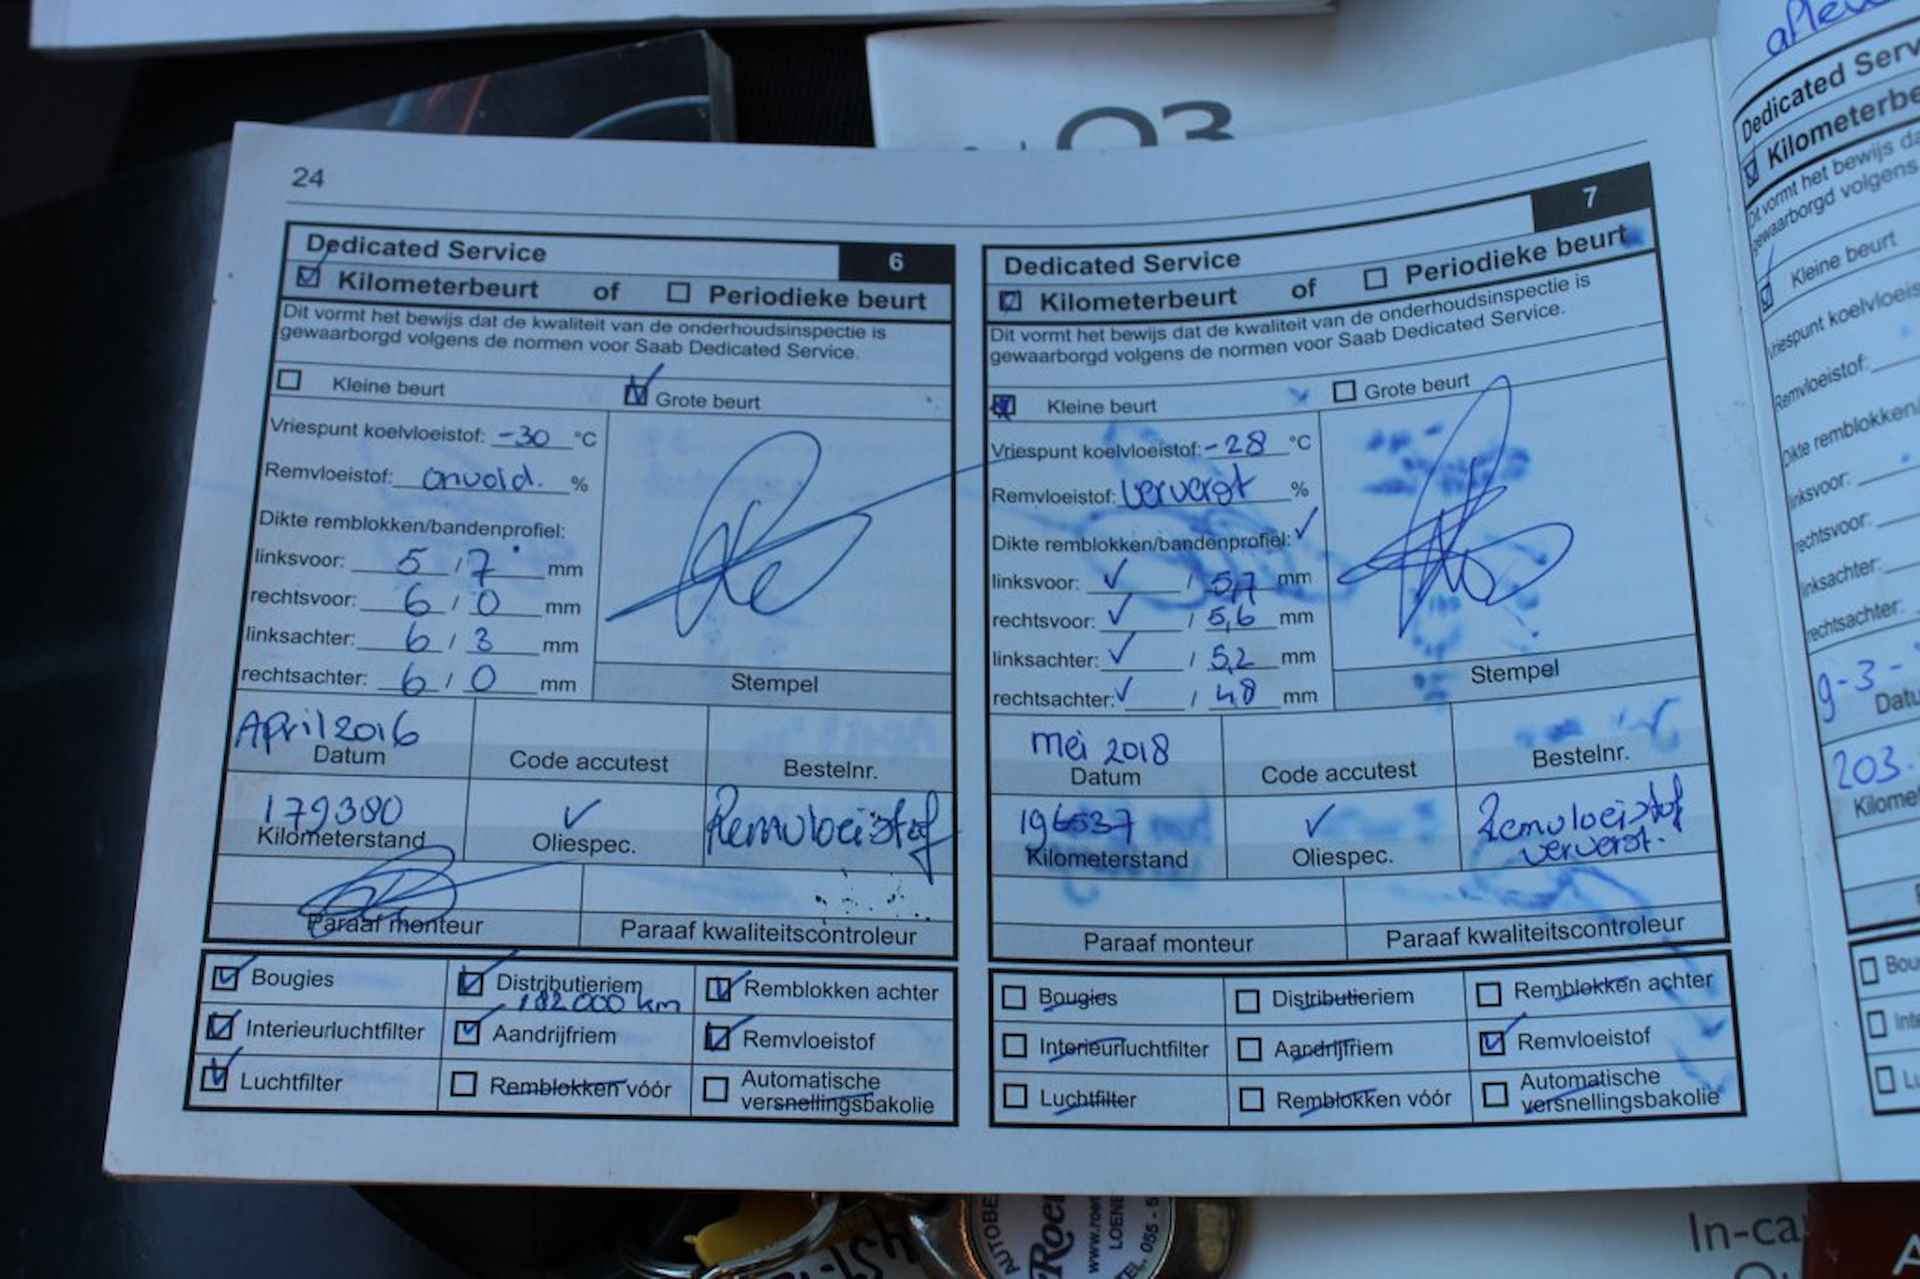 24
6
Dedicated Service
Kilometerbeurt of Periodieke beurt
Dit vormt het bewijs dat de kwaliteit van de onderhoudsinspectie is
gewaarborgd volgens de normen voor Saab Dedicated Service.
Kleine beurt Grote beurt
Vriespunt koelvloeistof: -30 °C
Remvloeistof: onvold. %
Dikte remblokken/bandenprofiel:
linksvoor: 5 / 7 mm
rechtsvoor: 6 / 0 mm
linksachter: 6 / 3 mm
rechtsachter: 6 / 0 mm
Stempel
April 2016
Datum Code accutest Bestelnr.
179380 ✓ Remvloeistof
Kilometerstand Oliespec.
Paraaf monteur Paraaf kwaliteitscontroleur
Bougies Distributieriem Remblokken achter
182.000 km
Interieurluchtfilter Aandrijfriem Remvloeistof
Luchtfilter Remblokken vóór Automatische
versnellingsbakolie
7
Dedicated Service
Kilometerbeurt of Periodieke beurt
Dit vormt het bewijs dat de kwaliteit van de onderhoudsinspectie is
gewaarborgd volgens de normen voor Saab Dedicated Service.
Kleine beurt Grote beurt
Vriespunt koelvloeistof: -28 °C
Remvloeistof: ververst %
Dikte remblokken/bandenprofiel: ✓
linksvoor: ✓ / 5,7 mm
rechtsvoor: ✓ / 5,6 mm
linksachter: ✓ / 5,2 mm
rechtsachter: ✓ / 4,8 mm
Stempel
mei 2018
Datum Code accutest Bestelnr.
196537 ✓ Remvloeistof
ververst.
Kilometerstand Oliespec.
Paraaf monteur Paraaf kwaliteitscontroleur
Bougies Distributieriem Remblokken achter
Interieurluchtfilter Aandrijfriem Remvloeistof
Luchtfilter Remblokken vóór Automatische
versnellingsbakolie
Dedicated
Dit vormt het bewijs
gewaarborgd volgens
Kleine beurt
Vriespunt
Remvloeistof:
Dikte
linksvoor:
rechtsvoor:
linksachter:
rechtsachter:
9-3-
203.
In-ca